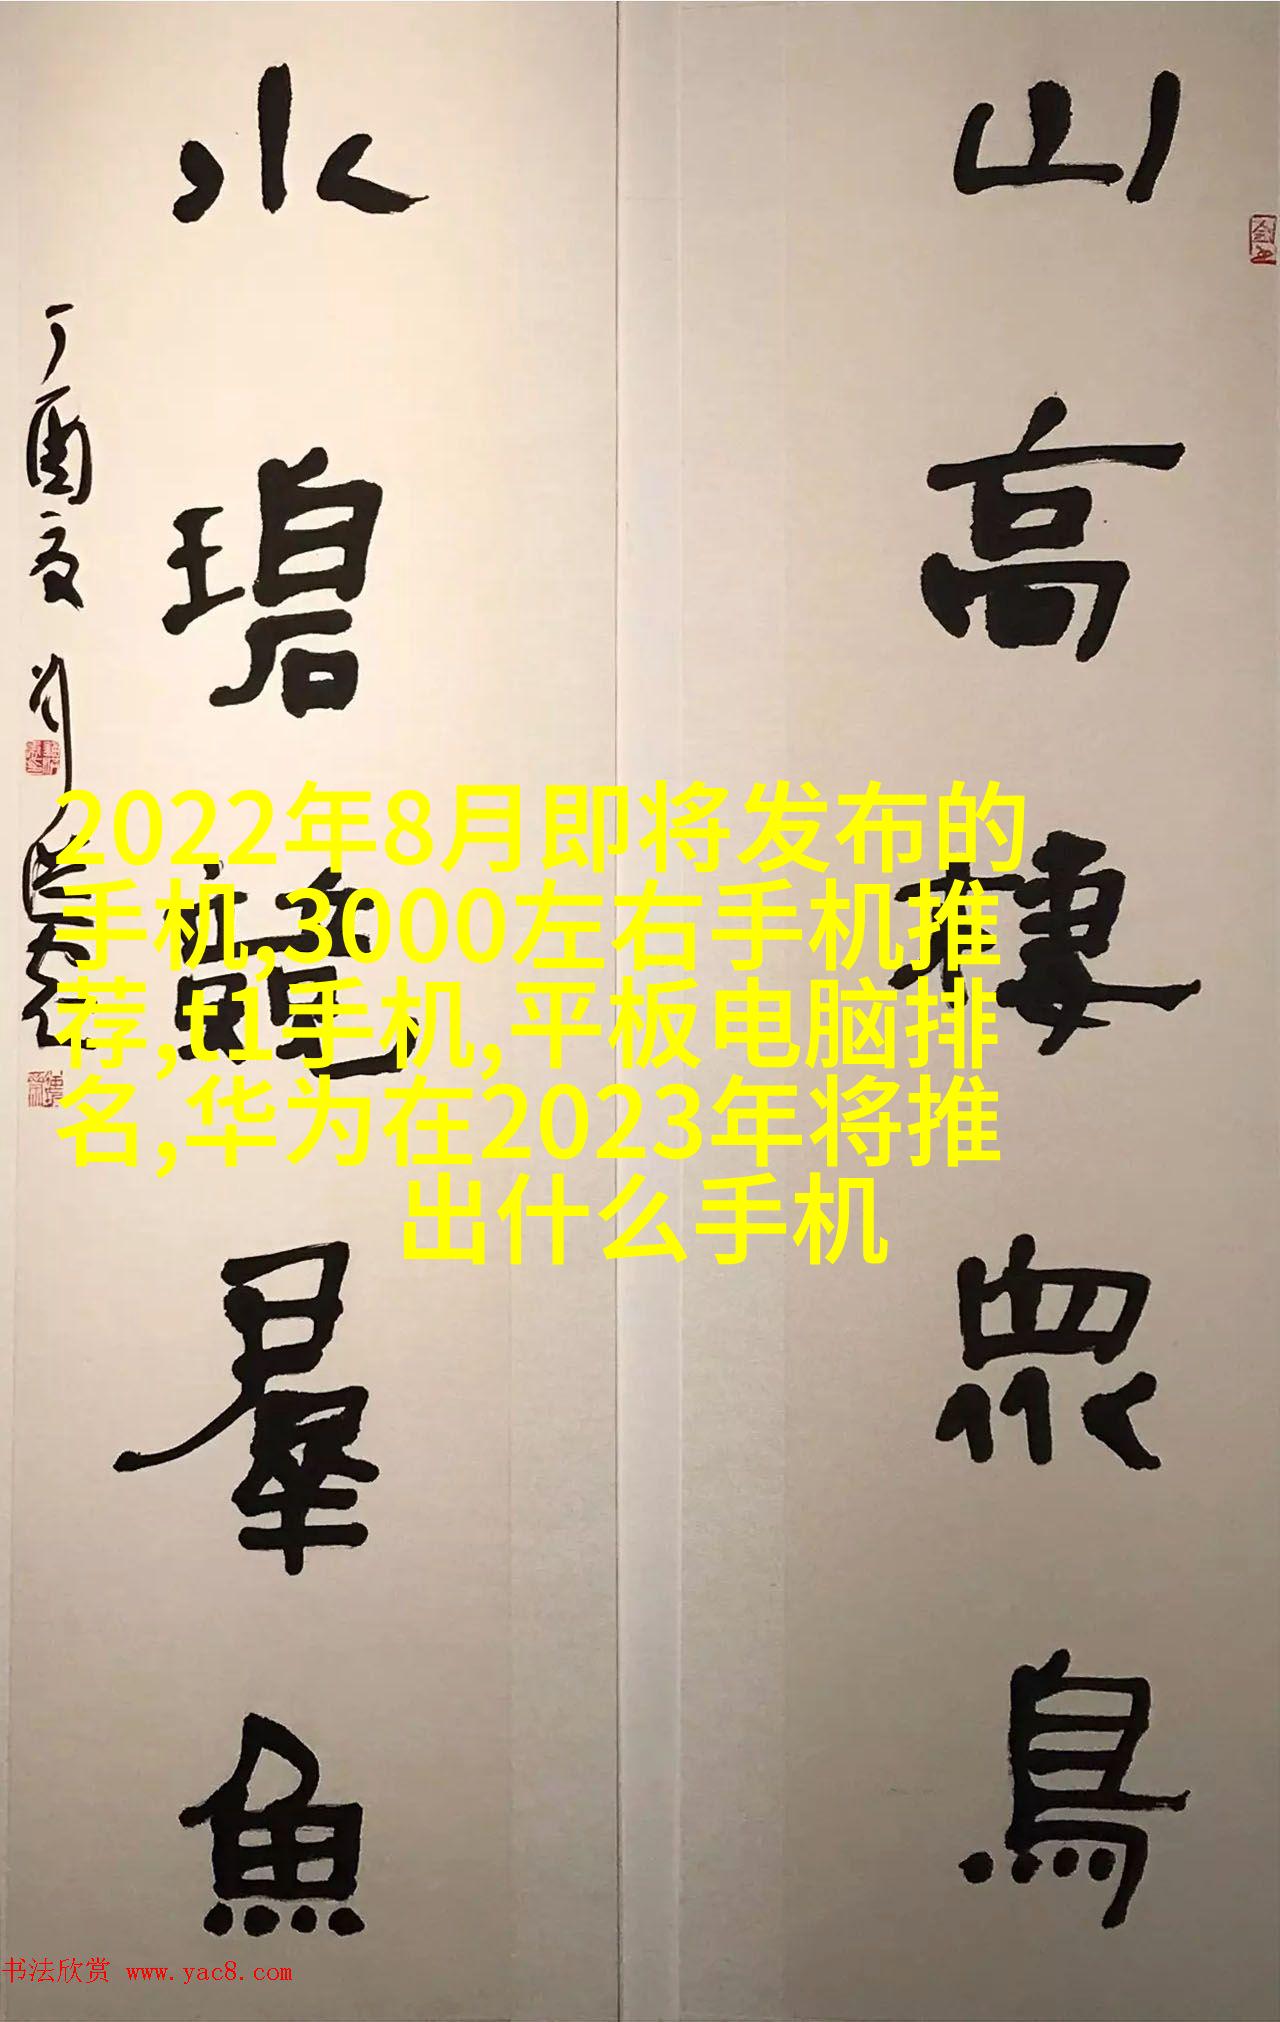 山高棲眾鳥
水碧 羣魚
丁酉夏刘
2022年8月即将发布的
手机,3000左右手机推
荐,t1手机,平板电脑排
名,华为在2023年将推
出什么手机
书法欣赏 www.yac8.com